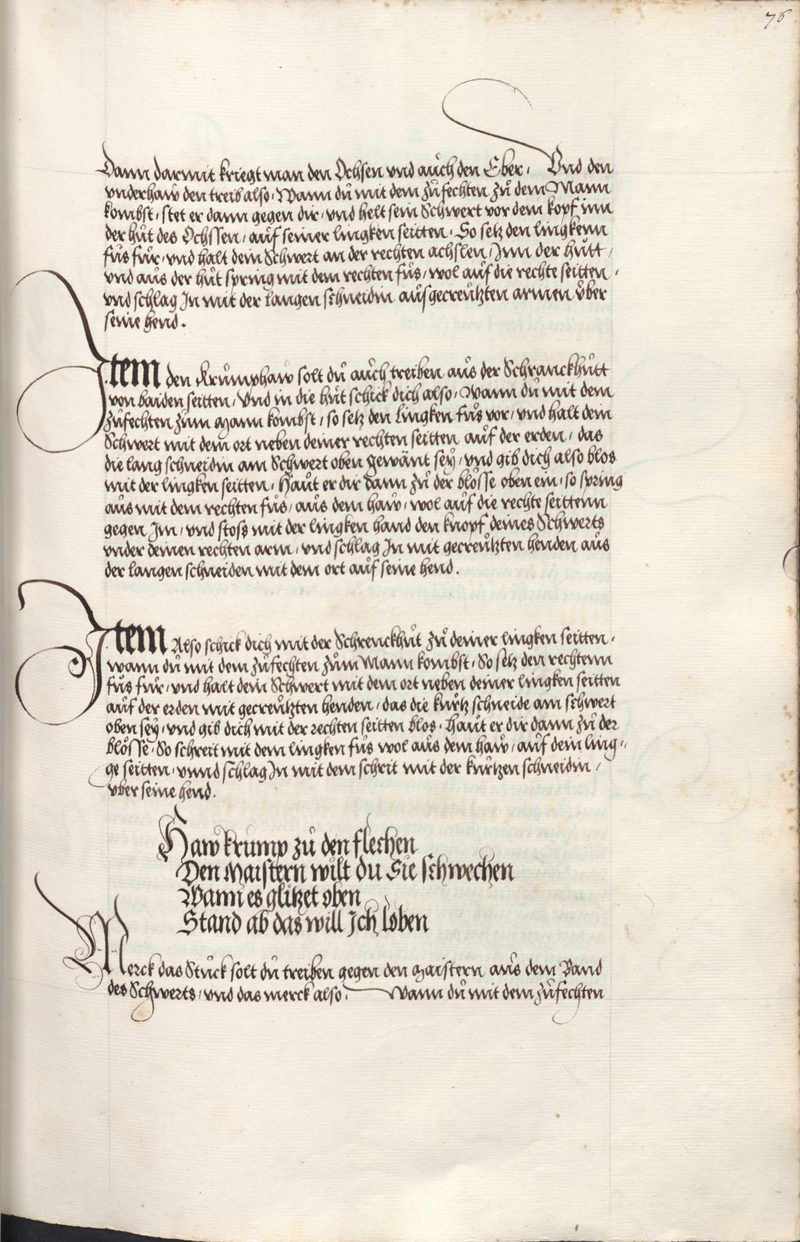 76
Dann darmit kriegt man den Ochsen vnd auch den Eber. Vnd den
vnderhaw den treib also. Wann dů mit dem zůfechten zů dem Mann
kombst, stet er dann gegen dir, vnd helt sein Schwert vor dem kopf inn
der hůt des Ochssen, auf seiner lingken seitten. So setz den lingkenn
fůs fůr, vnd halt dem Schwert an der rechten achslen, Inn der hůtt,
vnd aus der hůt spring mit dem rechten fůs, wol auf die rechte seitten,
vnd schlag In mit der langen schneidin ausgecreutzten armen über
seine hend.
Item den Krumphaw solt dů auch treiben aus der Schranckhůtt
von baiden seitten, Vnd in die hůt schick dich also. Wann dů mit dem
zůfechten zům Mann kombst, so setz den lingken fůs vor, vnd halt dem
Schwert mit dem ort neben deiner rechten seitten auf der erden, das
die lang schneidin am Schwert oben gewänt seÿ, vnd gib dich also blos
mit der lingken seitten. Haut er dir dann zů der blösse oben ein, so spring
aus mit dem rechten fůs, aus dem haw, wol auf die rechte seittenn
gegen Im, vnd stoss mit der lingken hand den knopf deines Schwerts
vnder deinen rechten arm, vnd schlag In mit gecreutzten henden aus
der langen schneiden mit dem ort auf seine hend.
Item Also schick dich mit der Schrenckhůt zů deiner lingken seitten.
wann dů mit dem zůfechten zům Mann kombst. So setz den rechtenn
fůs fůr, vnd halt dein Schwert mit dem ort neben deiner lingken seitten
auf der erden mit gecreutzten henden, das die kurtz schneide am schwert
oben seÿ, vnd gib dich mit der rechten seitten blos. Haut er dir dann zů der
blösse. So schreit mit dem lingken fůs wol aus dem haw, auf dein ling-
ge seitten, vnnd schlag In mit dem schrit mit der kurtzen schneidin,
vber seine hend.
Haw krump zů den flechen
Den Maistern wilt du Sie schwechen
Wann es glitzet oben
Stand ab das will Ich loben
Merck das Stuck solt dů treiben gegen den Maistern aus dem Band
des Schwerts, vnd das merck also. Wann dů mit dem zůfechten